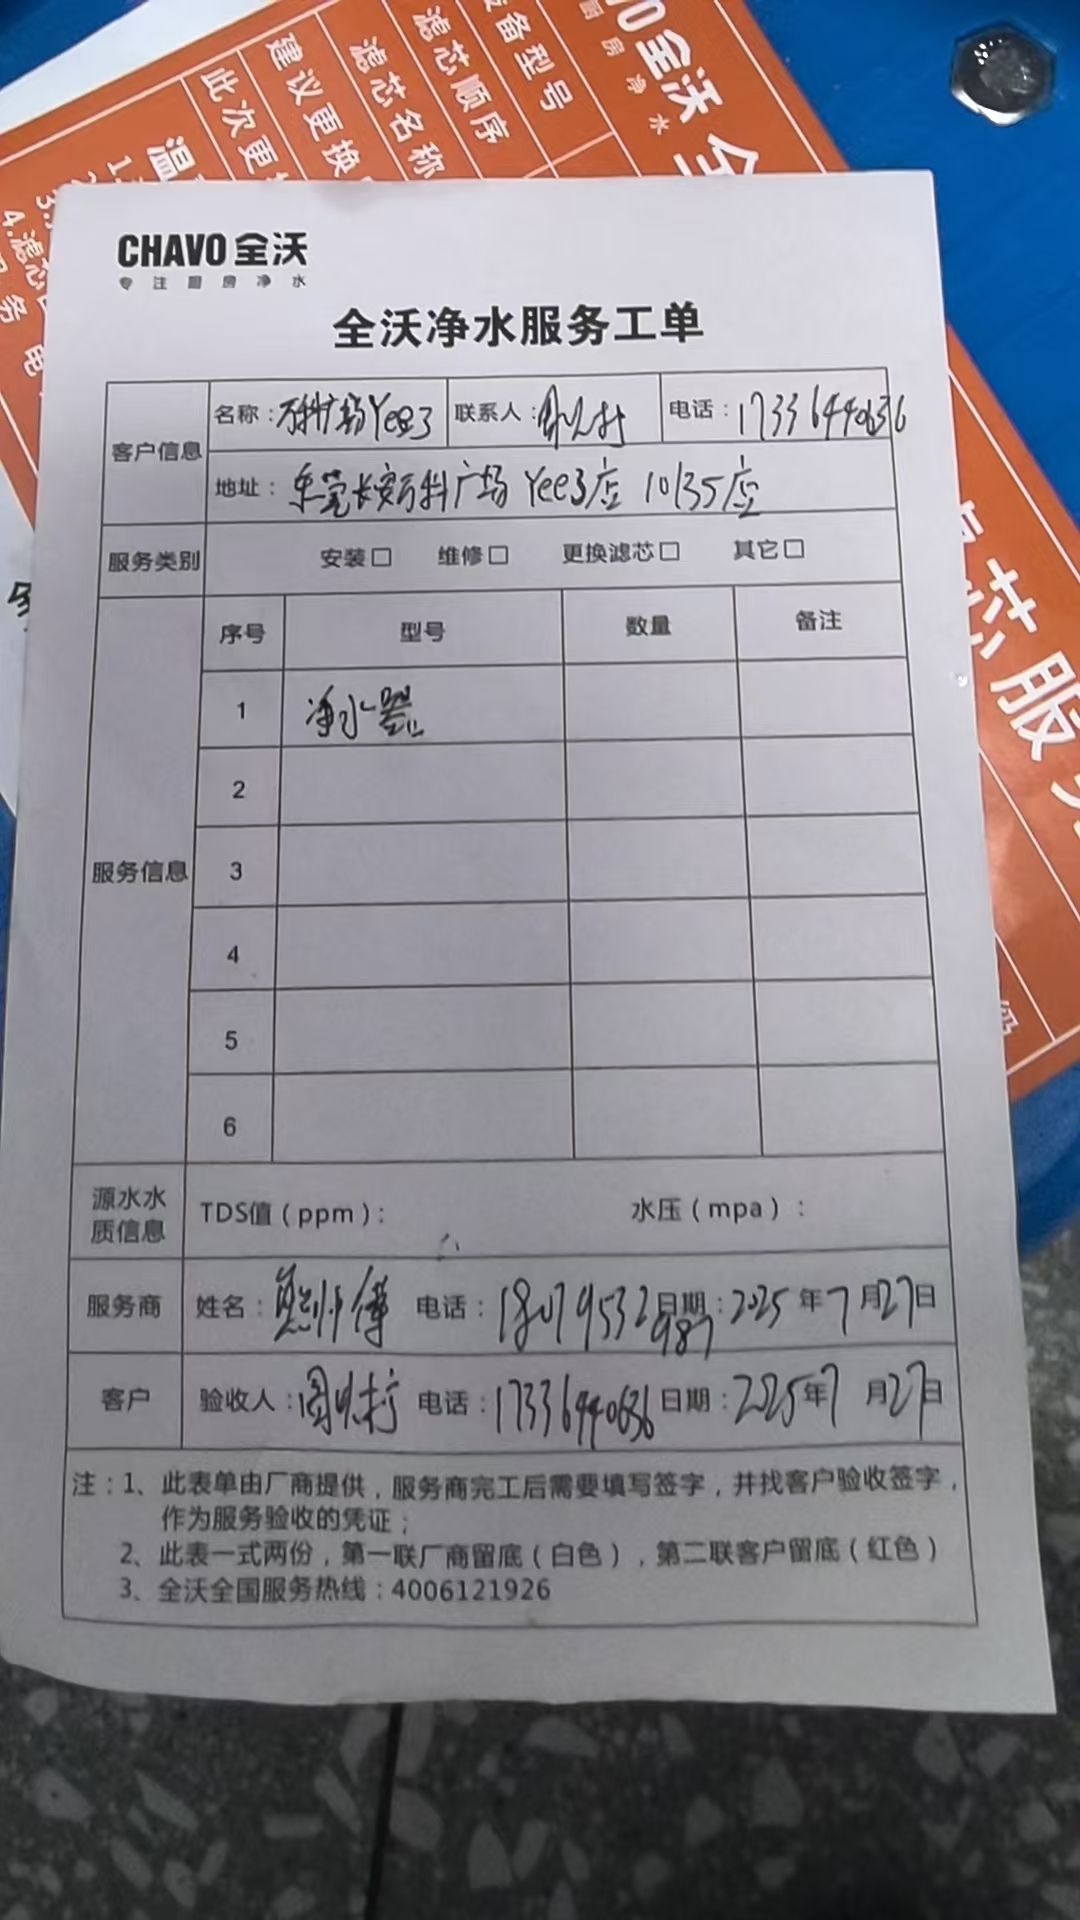 全沃
厨房净水
设备型号
滤芯顺序
滤芯名称
建议更换
此次更换
CHAVO 全沃
专注厨房净水
全沃净水服务工单
客户信息
名称：万科广场Yee3 联系人： 电话：17336440636
地址：东莞长安万科广场 Yee3店 10135店
服务类别 安装□ 维修□ 更换滤芯□ 其它□
服务信息
序号 型号 数量 备注
1 净水器
2
3
4
5
6
源水水质信息 TDS值（ppm）： 水压（mpa）：
服务商 姓名：师傅 电话：18079532987 日期：2025年7月27日
客户 验收人： 电话：17336440636 日期：2025年7月27日
注：1、此表单由厂商提供，服务商完工后需要填写签字，并找客户验收签字，
作为服务验收的凭证；
2、此表一式两份，第一联厂商留底（白色），第二联客户留底（红色）
3、全沃全国服务热线：4006121926
芯服务